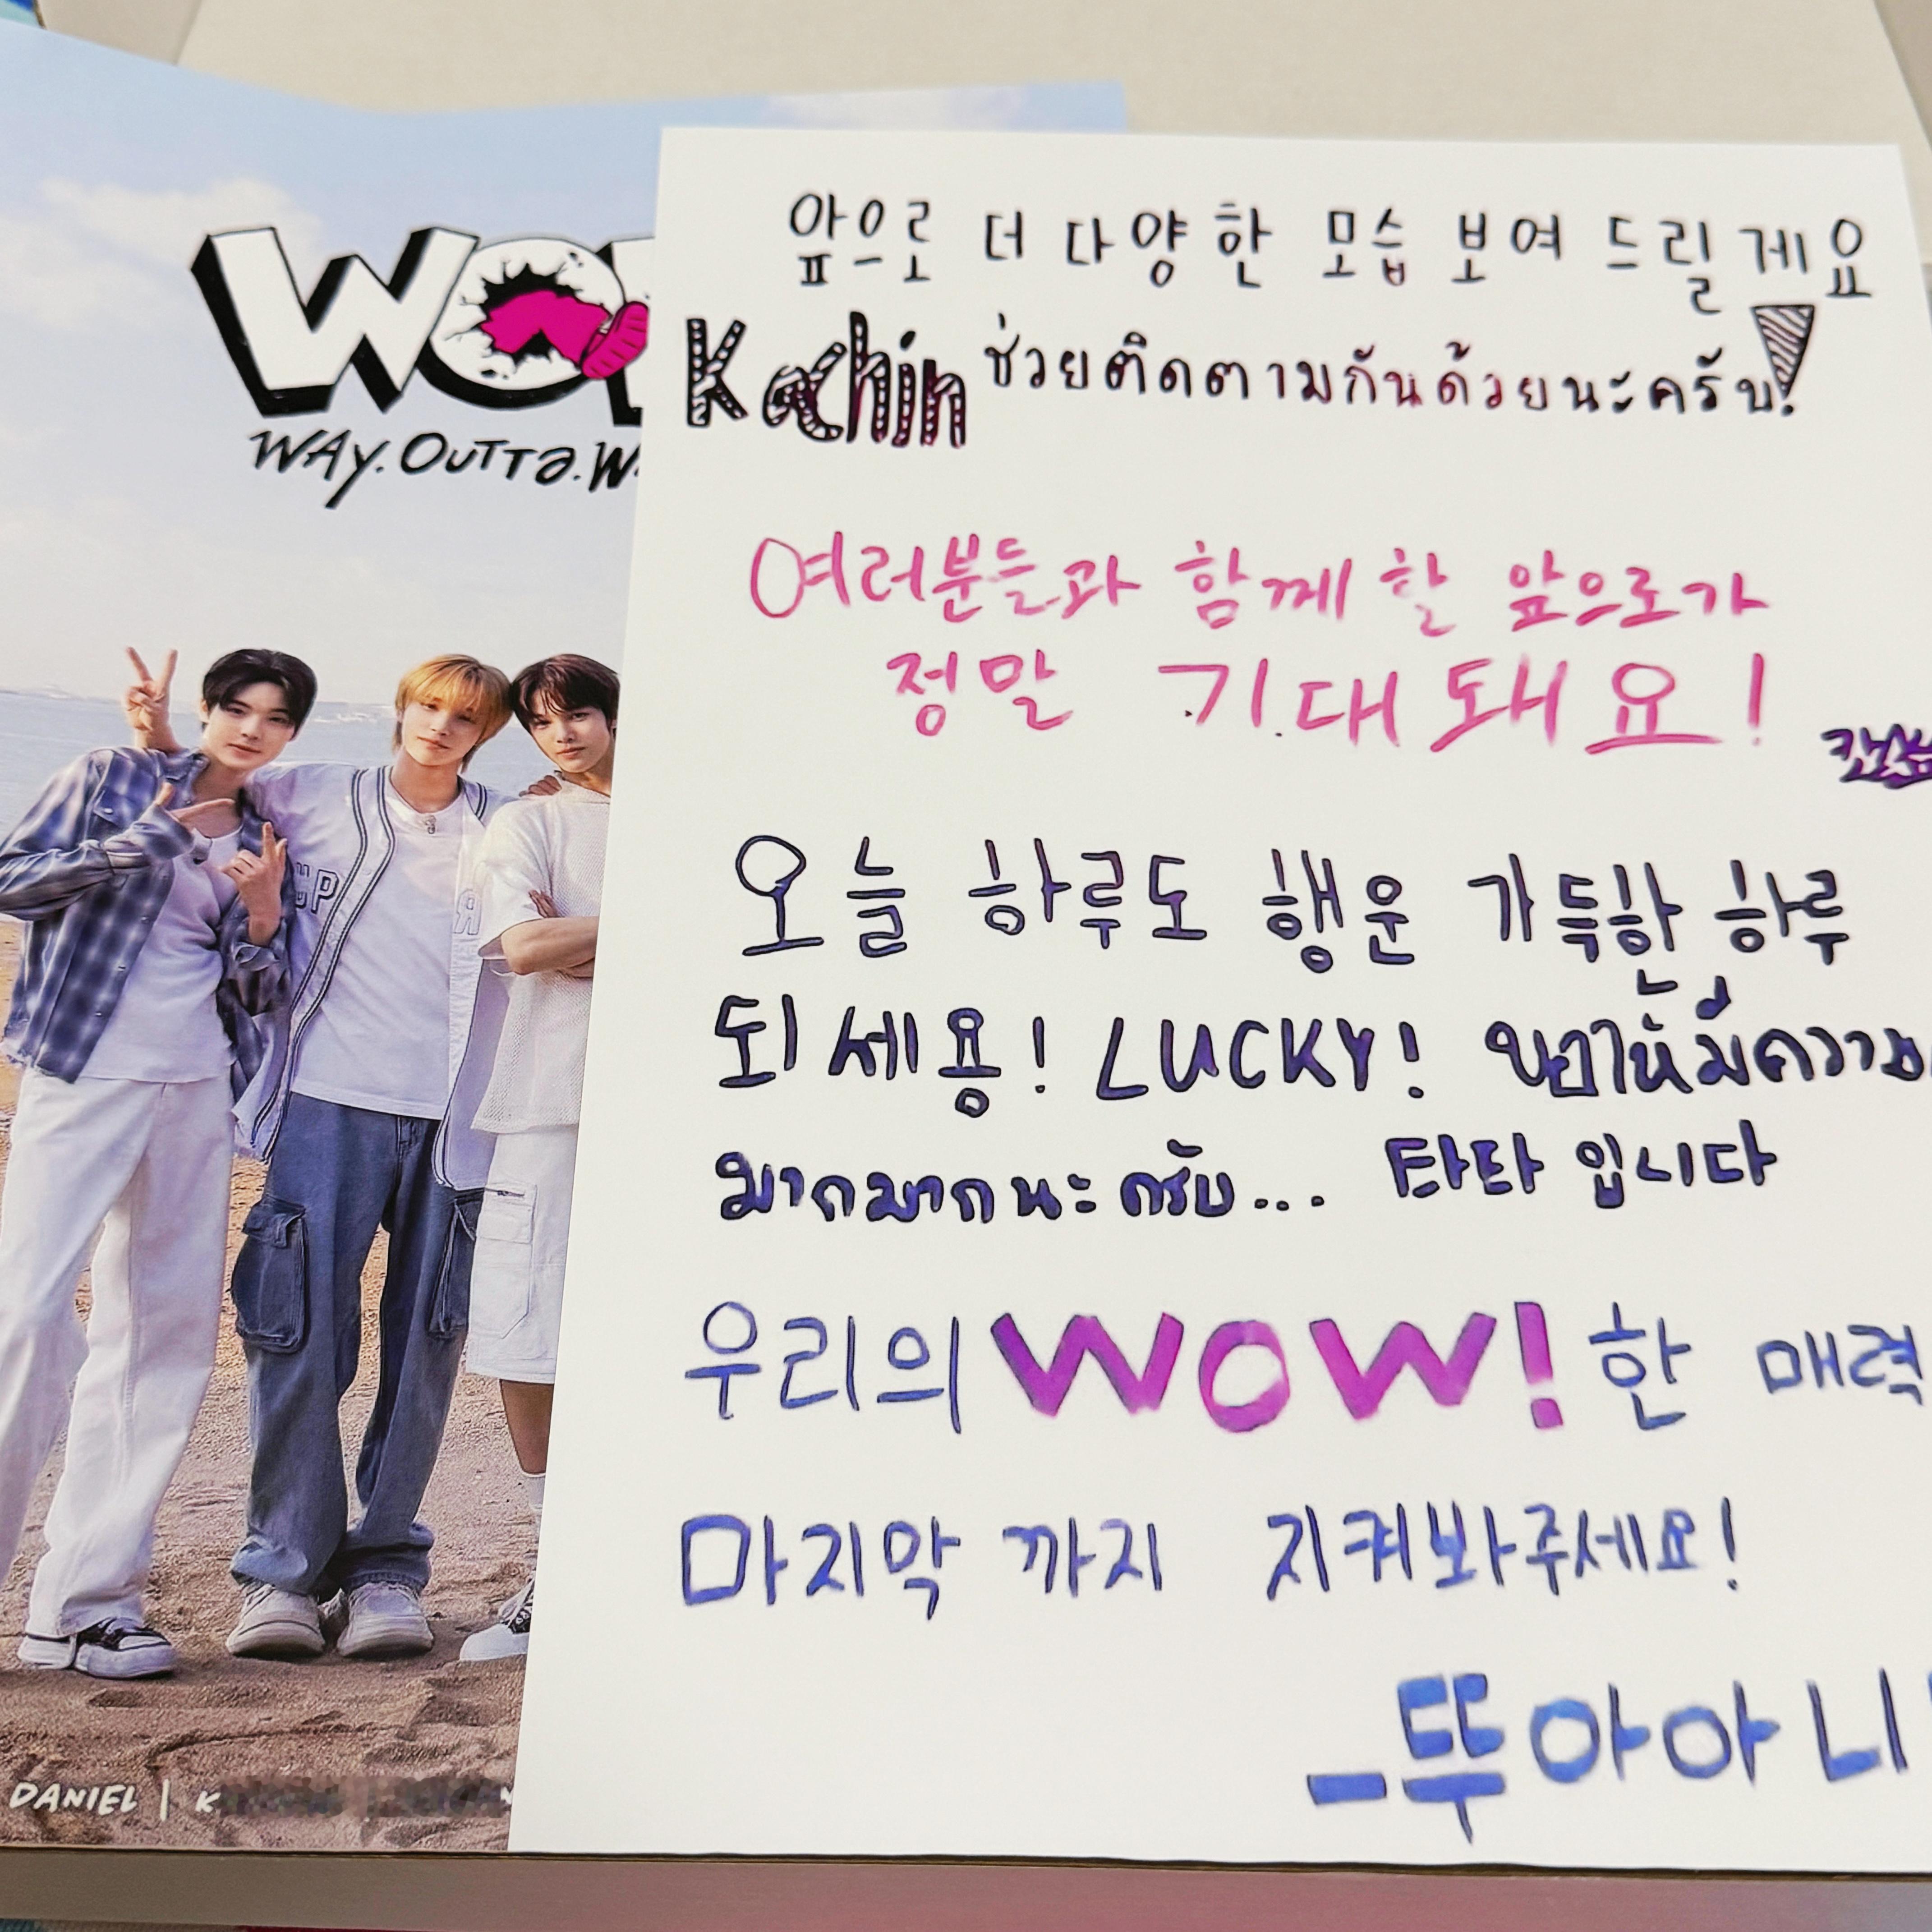 WAY.OUTTA.
DANIEL | K
앞으로 더 다양한 모습 보여 드릴게요
Kachin ช่วยติดตามกันด้วยนะครับ!
여러분들과 함께 할 앞으로가
정말 기대돼요!
오늘 하루도 행운 가득한 하루
되세용! LUCKY! ขอให้มีความ
มากมากนะครับ... 타타 입니다
우리의 WOW! 한 매력
마지막 까지 지켜봐주세요!
-뚜아아니